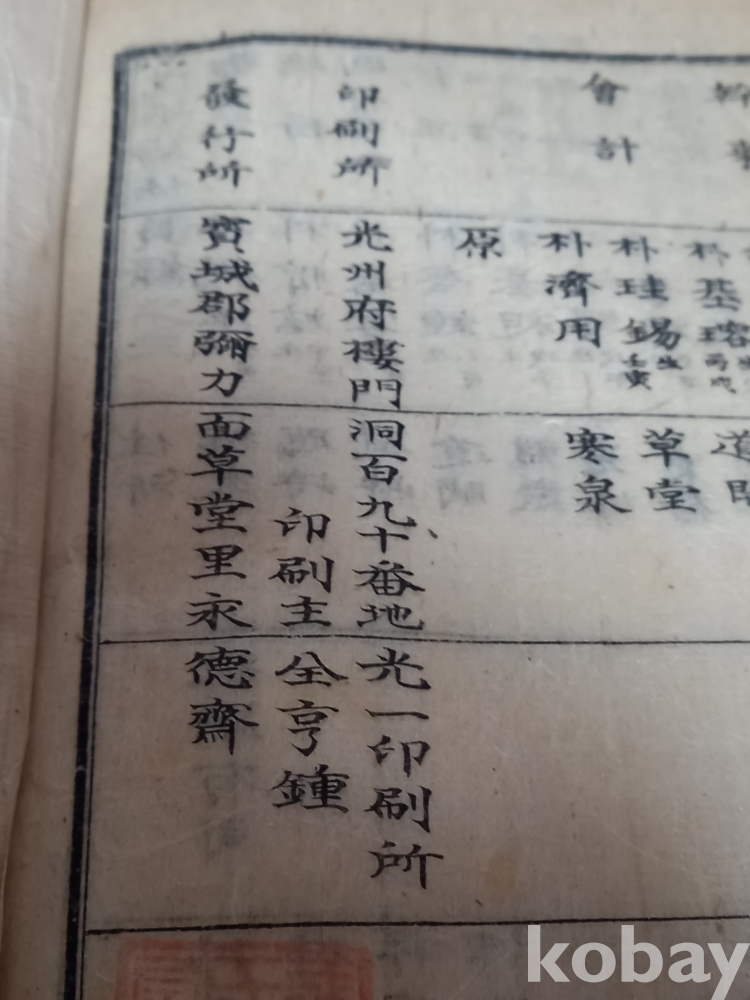 幹
會計
朴基
朴珪錫 生壬寅 草堂
朴濟用 寒泉
原
印刷所 光州府樓門洞百九十番地 光一印刷所
印刷主 全亨鍾
發行所 寶城郡彌力面草堂里永德齋
kobay